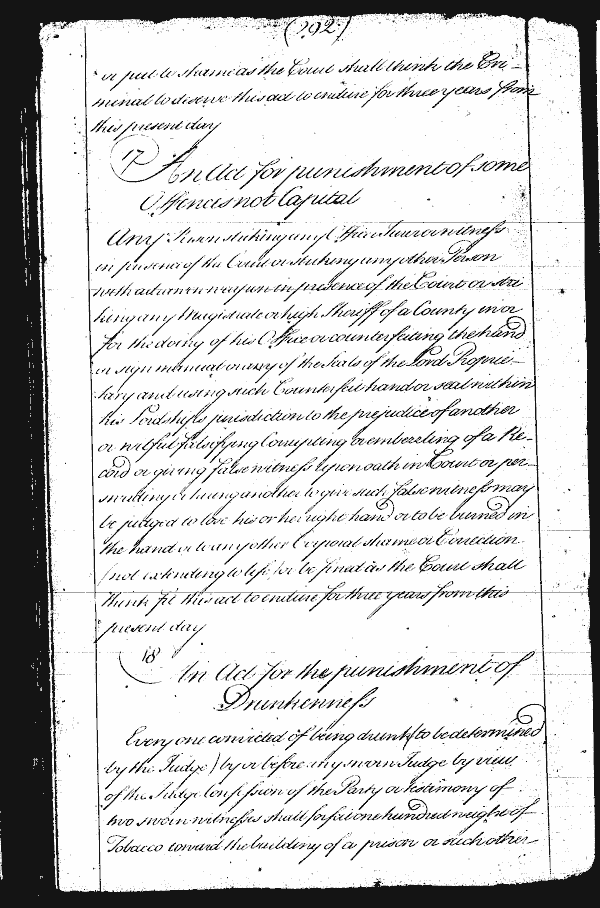 (292)
or put to shame as the Court shall think the Cri-
minal to deserve this act to endure for three years from
this present day
17 An Act for punishment of some
Offences not Capital
Any Person striking any Officer Juror or witness
in presence of the Court or striking any other Person
with a drawn weapon in presence of the Court or stri
king any Magistrate or high Sheriff of a County in or
for the doing of his Office or counterfeiting the hand
or sign manual or any of the Seals of the Lord Proprie-
tary and using such Counterfeit hand or seal within
his Lordships jurisdiction to the prejudice of another
or wilful falsifying Corrupting or embezeling of a Re-
cord or giving false witness upon oath in Court or per-
swading or hiring another to give such false witness may
be judged to lose his or her right hand or to be burned in
the hand or to any other Corporal shame or Correction
(not extending to life) or be fined as the Court shall
think fit this act to endure for three years from this
present day
18 An Act for the punishment of
Drunkenness
Every one convicted of being drunk (to be determined
by the Judge) by or before any sworn Judge by view
of the Judge Confession of the Party or testimony of
two sworn witnesses shall forfeit one hundred weight of
Tobacco toward the building of a prison or such other